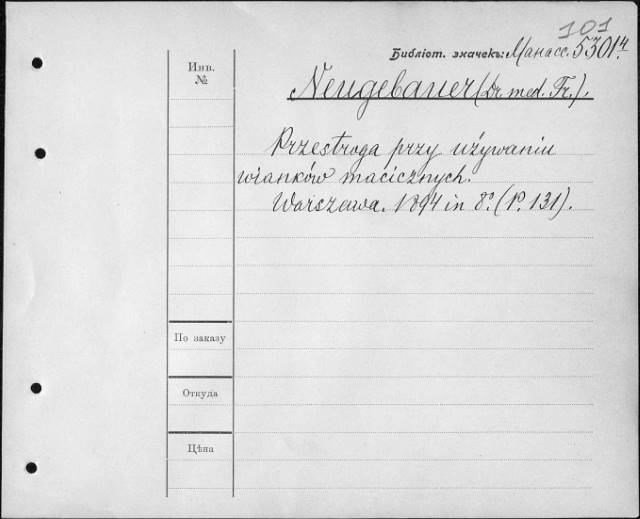 101
Библіот. значекъ: Манасс. 5301ч.
Инв.
№
Neugebauer (Dr. med. Fr.).
Przestroga przy używaniu
wianków macicznych.
Warszawa. 1894 in 8° (P. 131).
По заказу
Откуда
Цѣна